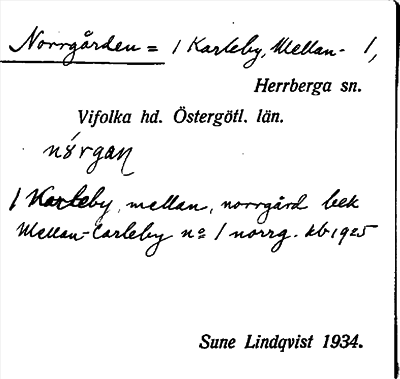 Norrgården = 1 Karleby, Mellan- 1,
Herrberga sn.
Vifolka hd. Östergötl. län.
nórgan
1 Karleby, mellan, norrgård bek
Mellan-Carleby nº 1 norrg. kb 1925
Sune Lindqvist 1934.